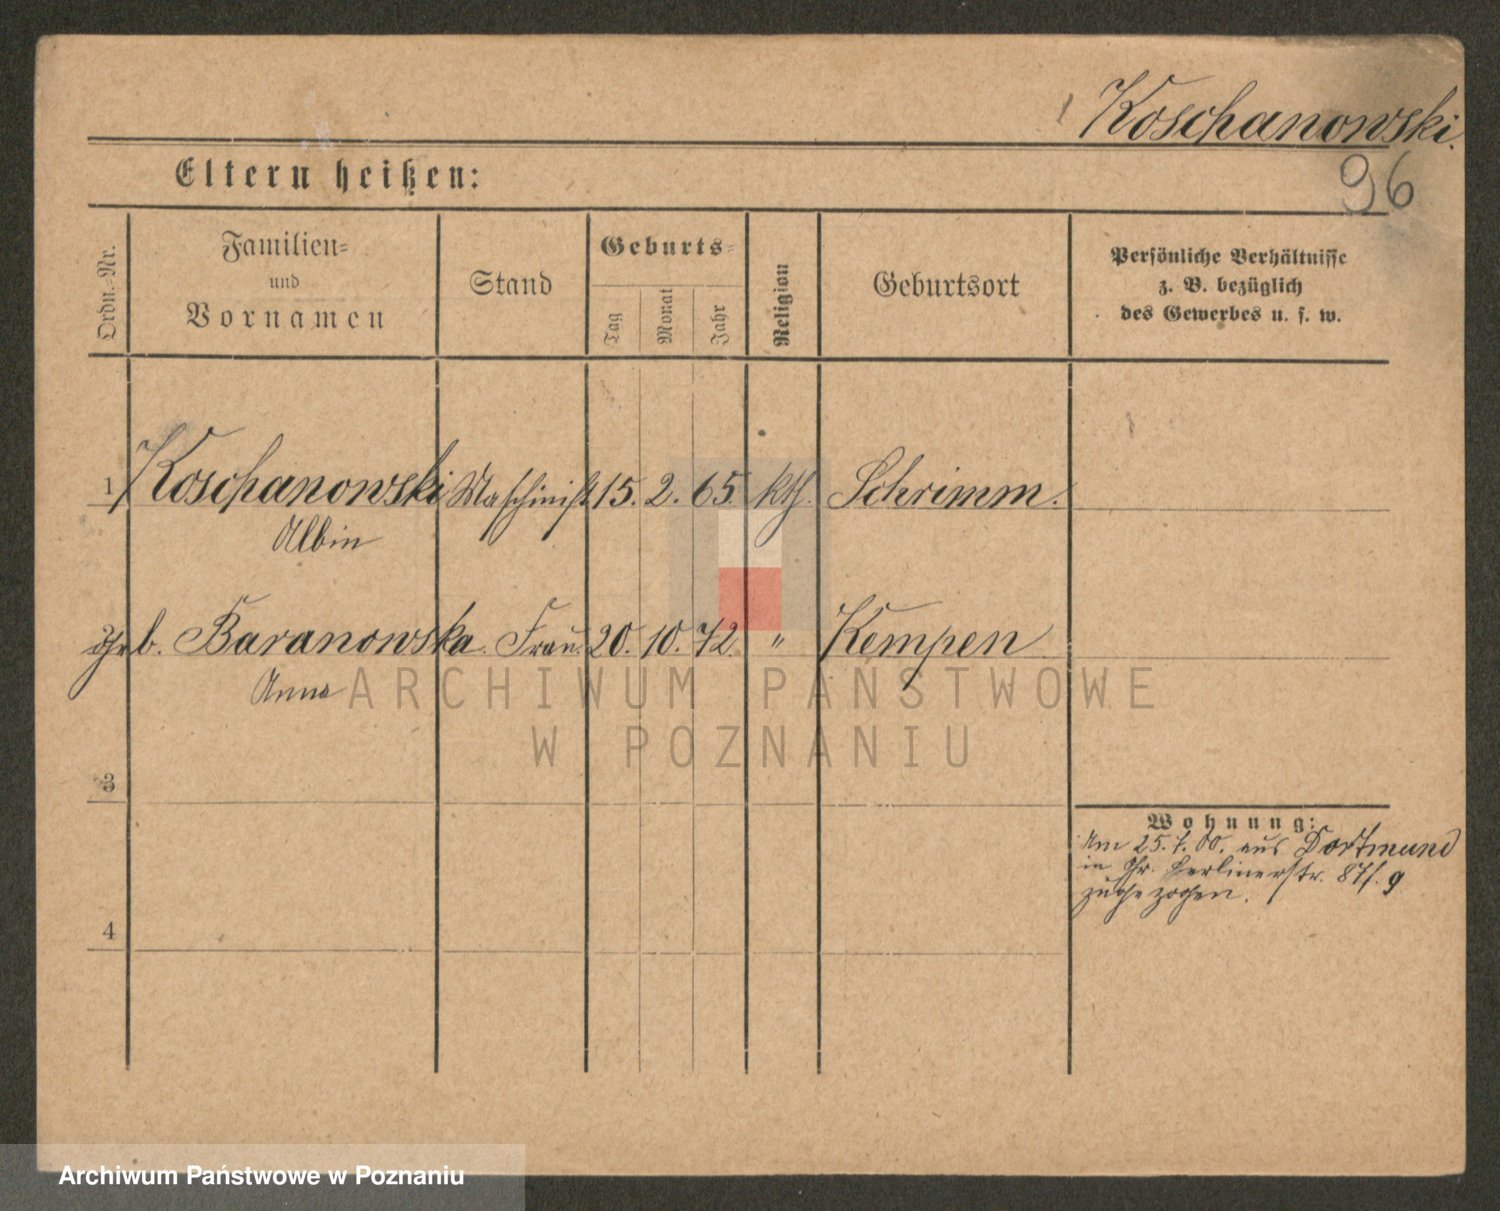 Koschanowski.
96
Eltern heißen:
Ordn.-Nr.
Familien-
und
Vornamen
Stand
Geburts-
Tag
Monat
Jahr
Religion
Geburtsort
Persönliche Verhältnisse
z. B. bezüglich
des Gewerbes u. s. w.
1 Koschanowski Maschinist 15. 2. 65. kth. Schrimm.
Albin
geb. Baranowska. Frau. 20. 10. 72. " Kempen
Anna
ARCHIWUM PAŃSTWOWE
W POZNANIU
3
4
Wohnung:
Am 25.7.00. aus Dortmund
in Gr. Berlinerstr. 87/. 9
zugezogen.
Archiwum Państwowe w Poznaniu